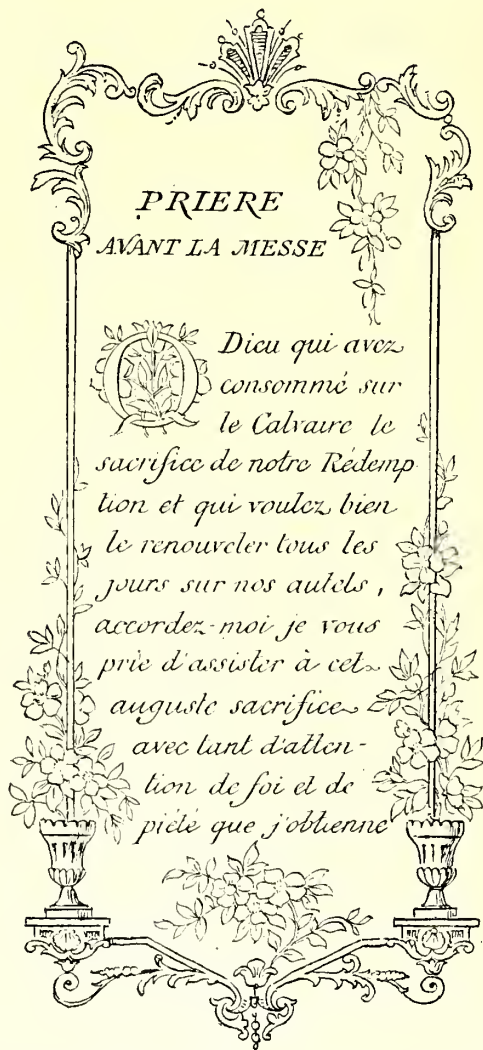 PRIERE
AVANT LA MESSE
O Dieu qui avez
consommé sur
le Calvaire le
sacrifice de notre Rédemp
tion et qui voulez bien
le renouveler tous les
jours sur nos autels,
accordez-moi je vous
prie d'assister à cet
auguste sacrifice
avec tant d'atten-
tion de foi et de
piété que j'obtienne